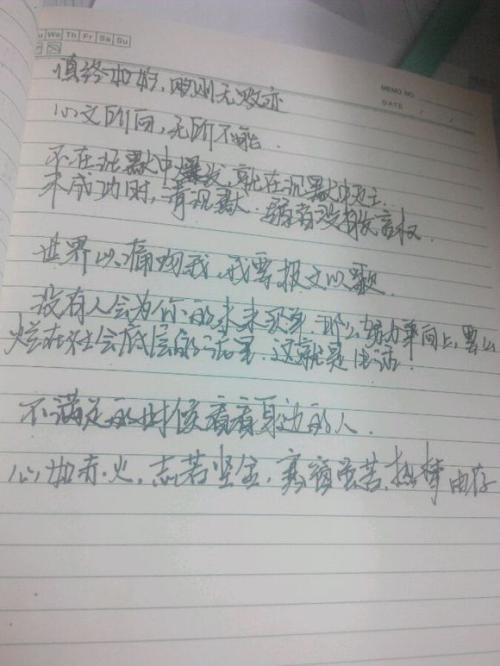 We Th Fr Sa Su
MEMO NO.
DATE / /
慎终如始,则无败迹
心之所向,无所不能
不在沉默中爆发,就在沉默中死亡.
未成功时,请沉默.弱者没有发言权.
世界以痛吻我,我要报之以歌
没有人会为你的未来买单.那么努力向上,要么
烂在社会底层的泥里.这就是生活.
不满足的时候看看身边的人.
心如赤火,志若坚金,寒苦,犹存